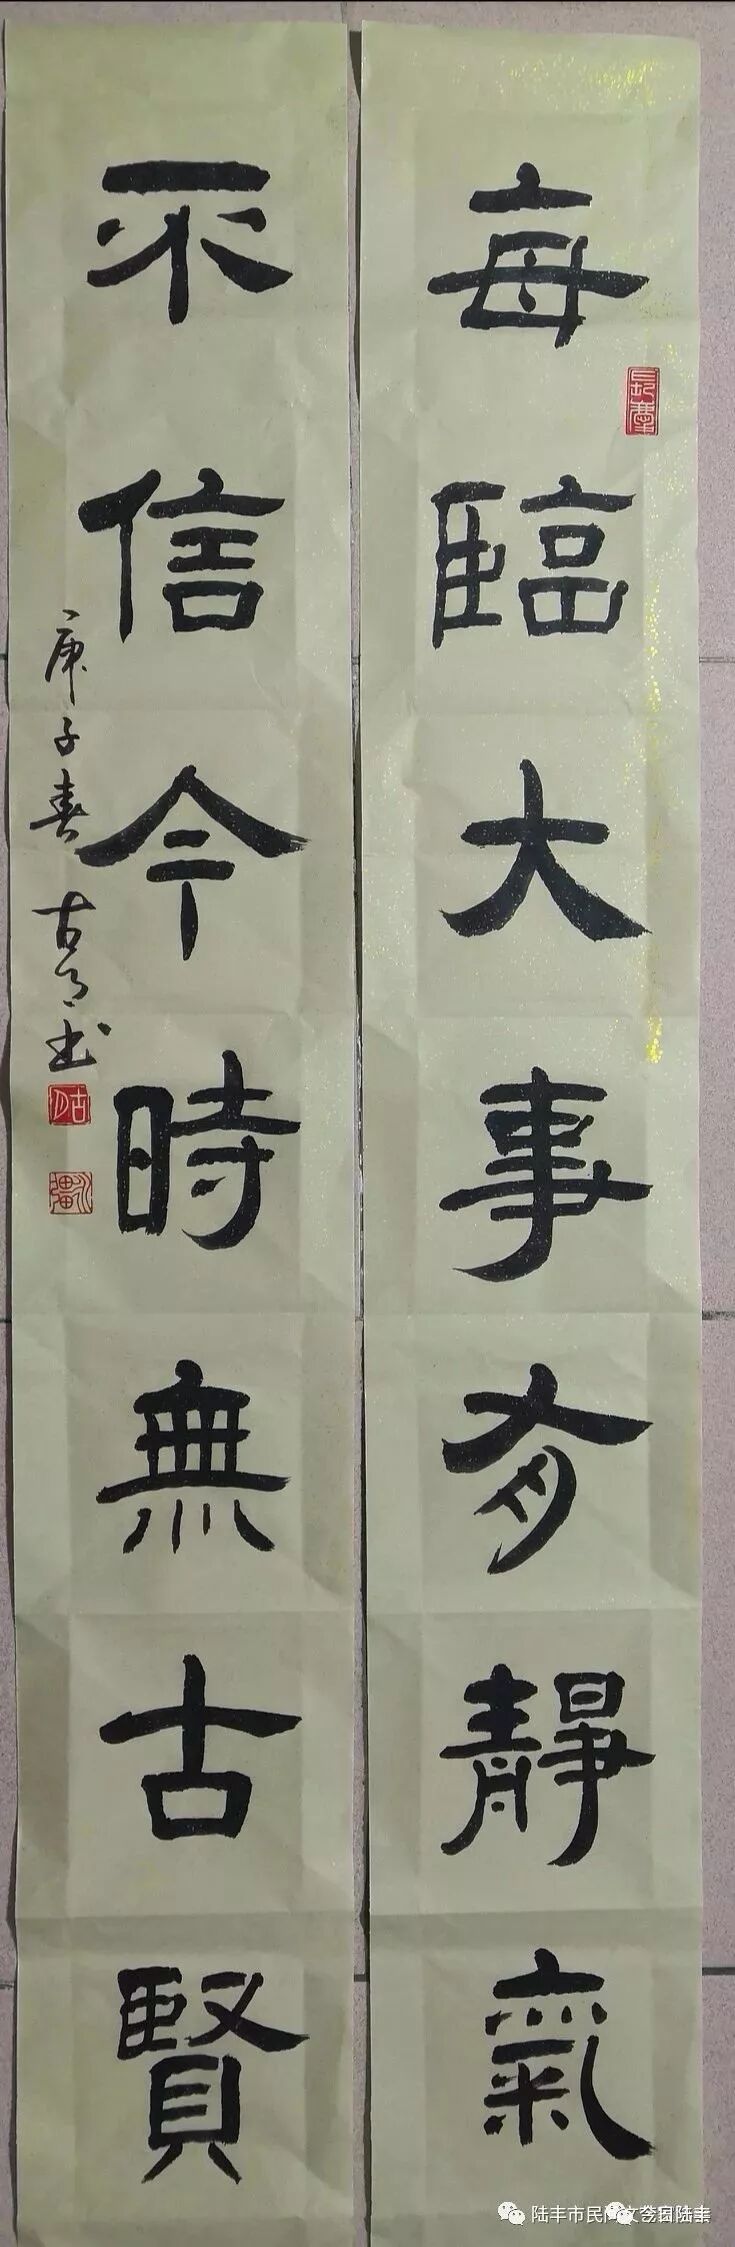 每臨大事有靜氣
不信今時無古賢
庚子春 古月書
陆丰市民间文艺
今日陆丰